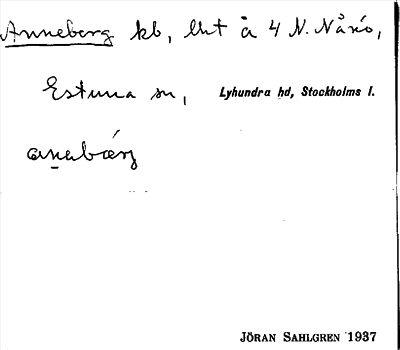 Anneberg kb, lht å 4 N. Nånö,
Estuna sn, Lyhundra hd, Stockholms l.
anabærj
JÖRAN SAHLGREN 1937